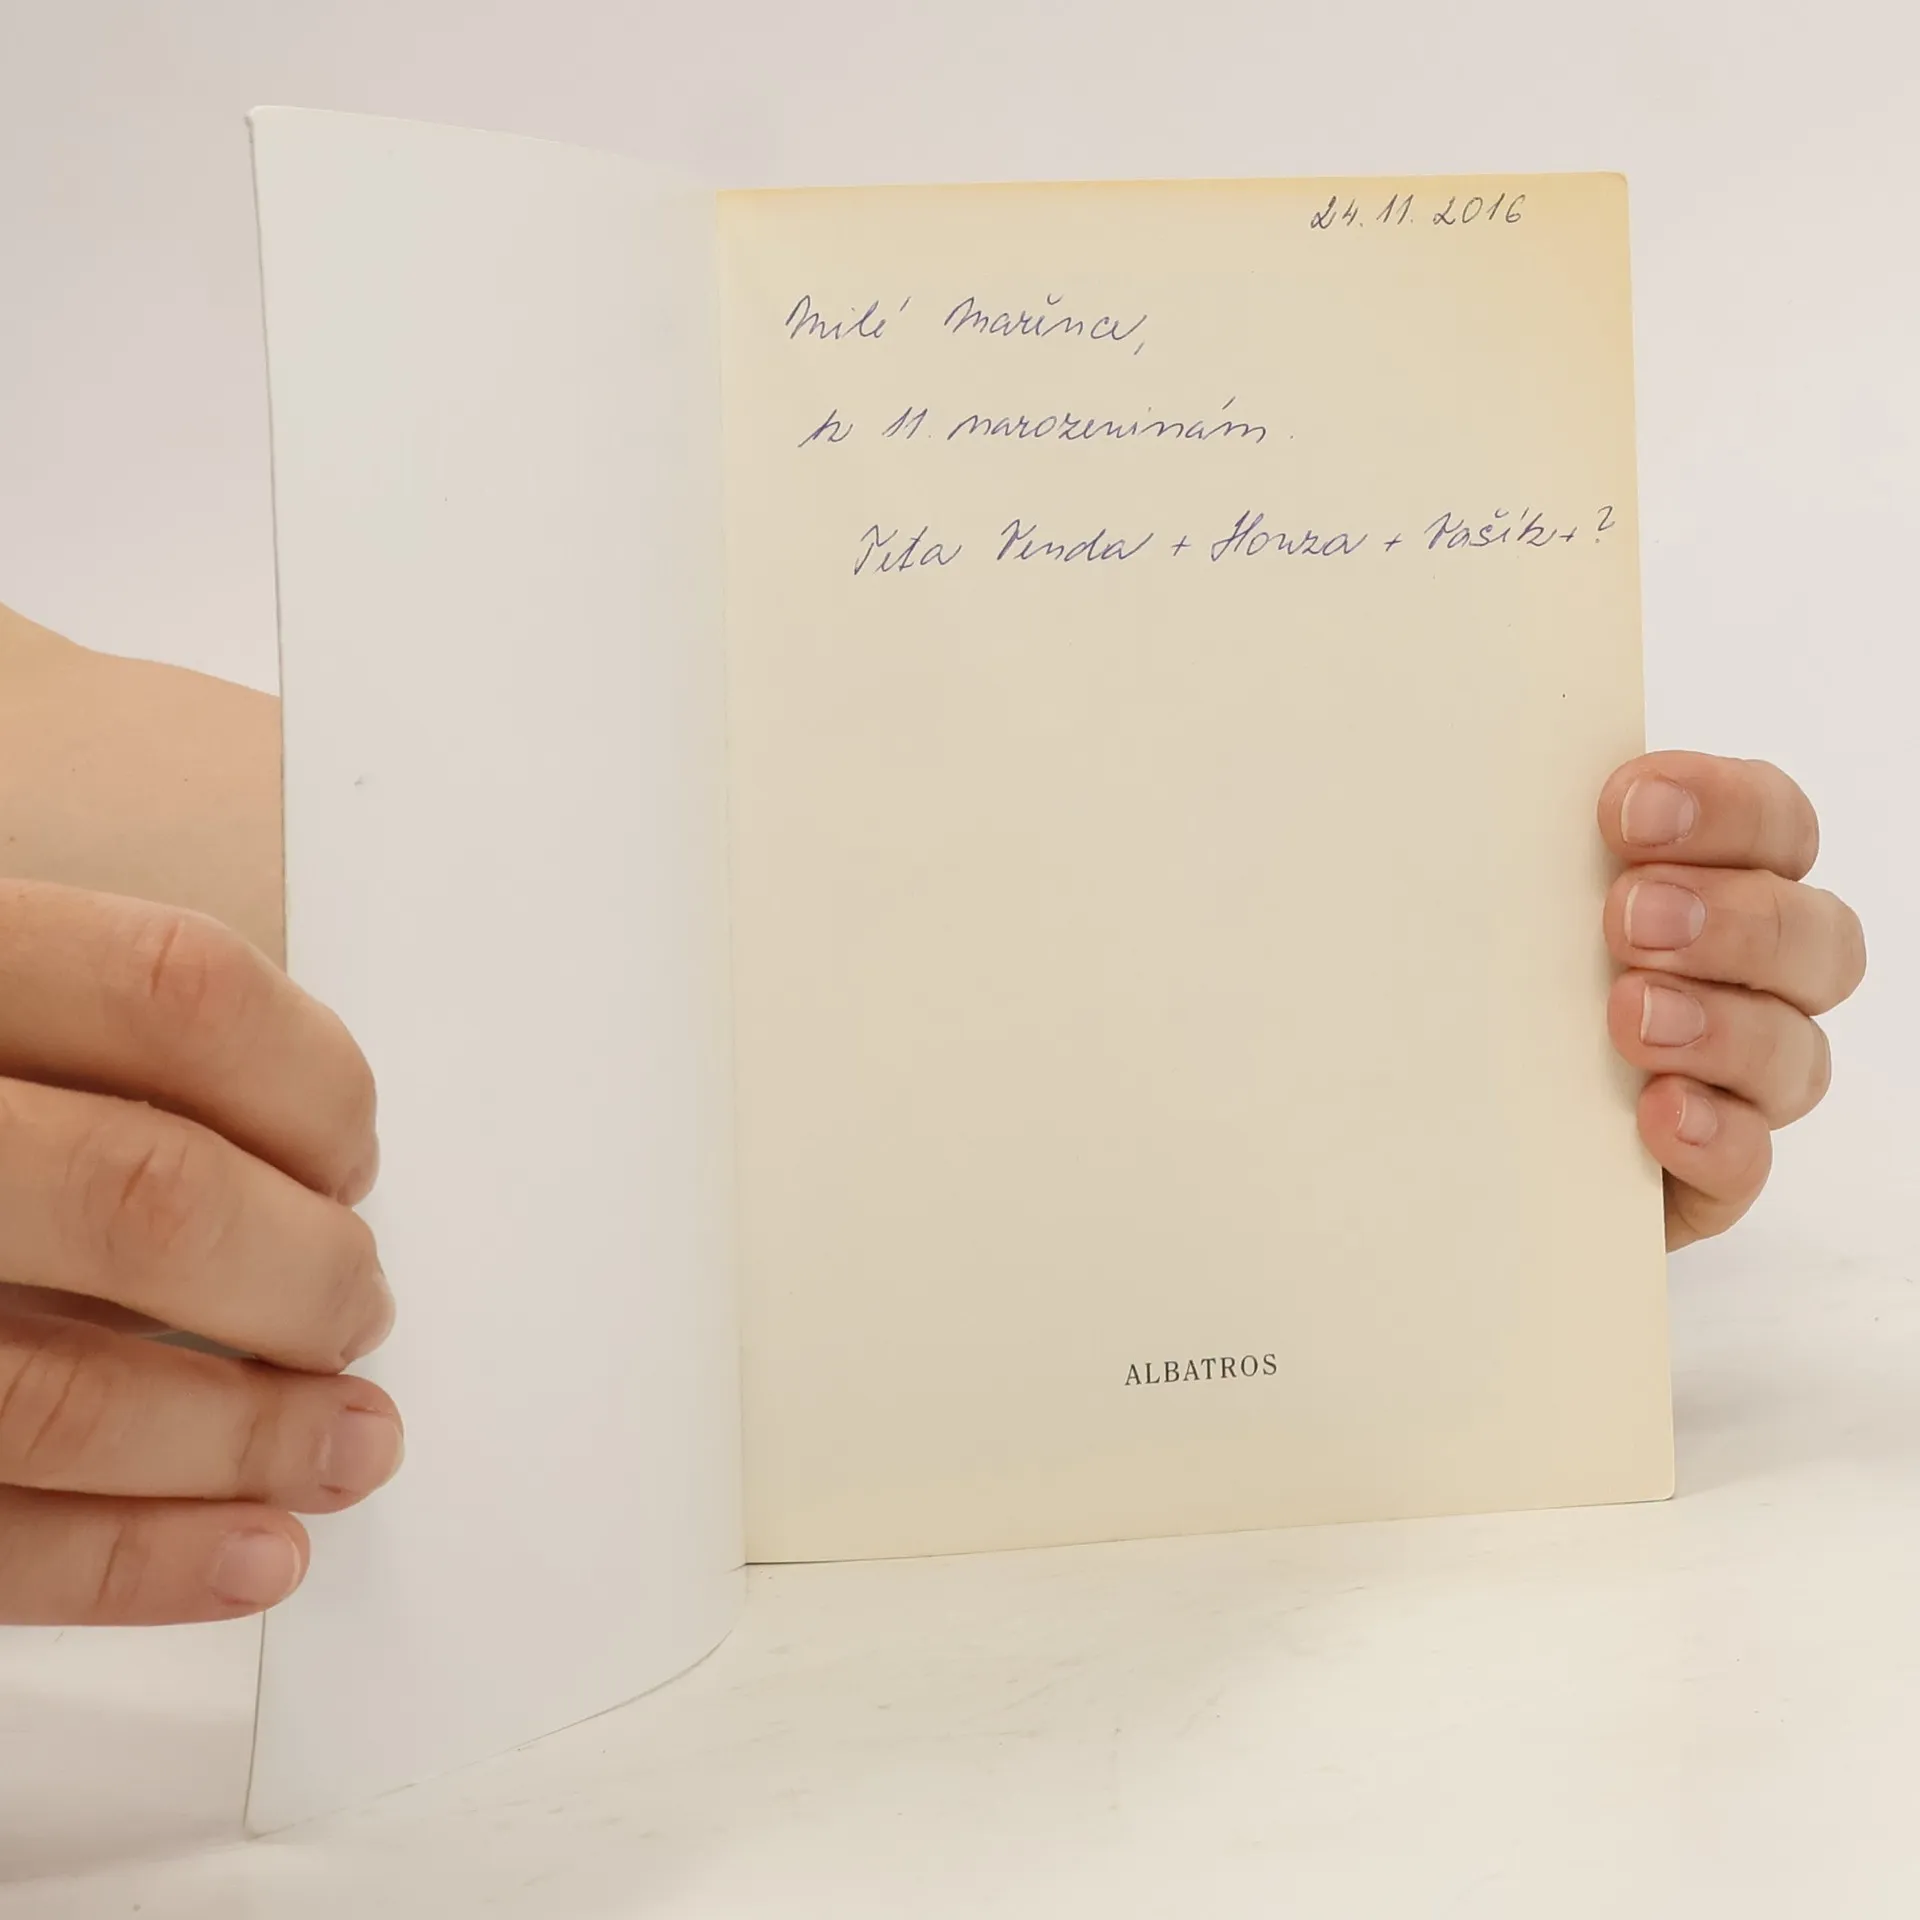 24. 11. 2016
Milé Mařence,
k 11. narozeninám.
Teta Venda + Honza + Vašík + ?
ALBATROS